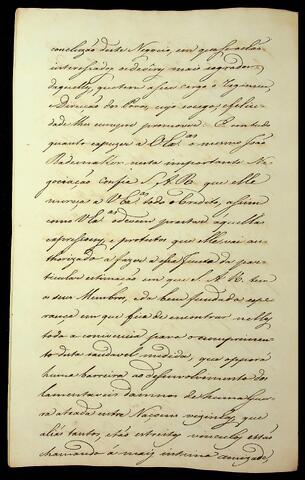 conclusão deste Negocio, em que se achão
interessados os deveres mais sagrados
daquelles, que tem a seu cargo o Regimen,
e Direcção dos Povos, cujo socego, e felici-
dade lhes cumpre promover. E em tudo
quanto expuzer a V. Ex.as o mesmo João
Rademaker nesta importante Ne-
gociação confia S. A. R. que elle
mereça a V. Ex.as todo o credito, assim
como V. Ex.as o devem prestar aquellas
expressoens, e protestos que elle vai au-
thorizado a fazer a essa Junta da par-
ticular estimação em que S. A. R. tem
os seus Membros, e da bem fundada espe-
rança, em que fica de encontrar nelles
toda a conivencia para o comprimen-
to desta saudavel medida, que opporá
huma barreira ao desenvolvimento dos
lamentaveis damnos de huma Guer-
ra ateada entre Nacoens vezinhas, que
aliás tantos, e tão estreitos vinculos estão
chamando á mais intima amizade,